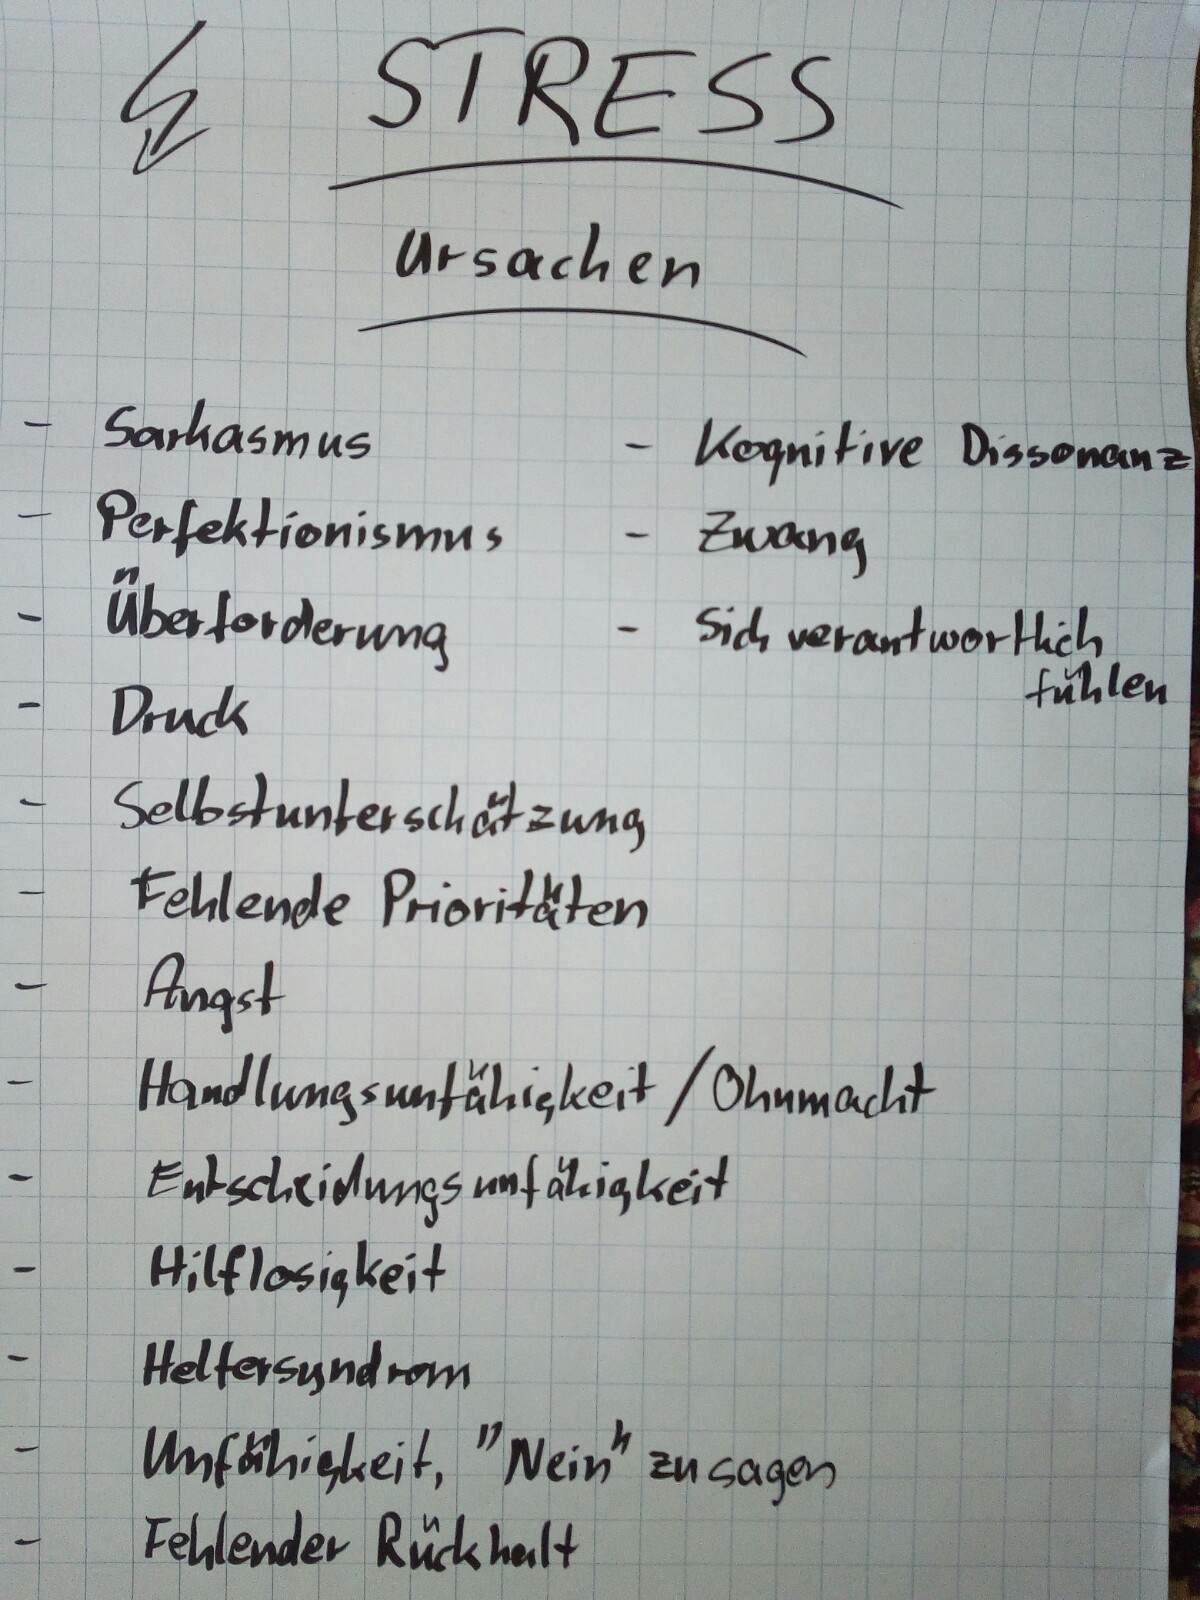 STRESS
Ursachen
- Sarkasmus
- Perfektionismus
- Überforderung
- Druck
- Selbstunterschätzung
- Fehlende Prioritäten
- Angst
- Handlungsunfähigkeit / Ohnmacht
- Entscheidungsunfähigkeit
- Hilflosigkeit
- Helfersyndrom
- Unfähigkeit, "Nein" zu sagen
- Fehlender Rückhalt
- Kognitive Dissonanz
- Zwang
- Sich verantwortlich
fühlen